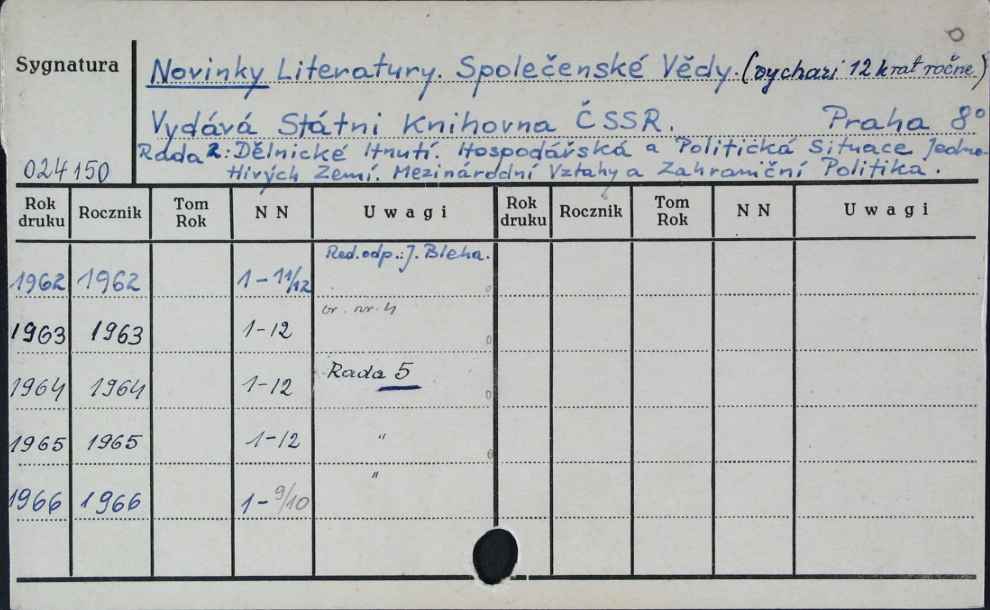 Sygnatura
Novinky Literatury. Společenské Vědy. (vychazí 12 krat ročne.)
Vydává Státni Knihovna ČSSR. Praha 8°
Rada 2: Dělnické Hnutí. Hospodářská a Politická Situace Jedno-
024150 Hivých Zemí. Mezinárodní Vztahy a Zahraniční Politika.
Rok druku Rocznik Tom Rok NN Uwagi Rok druku Rocznik Tom Rok NN Uwagi
Red. odp.: J. Bleha.
1962 1962 1-11/12
br. nr. 4
1963 1963 1-12
1964 1964 1-12 Rada 5
1965 1965 1-12 "
1966 1966 1-9/10 "